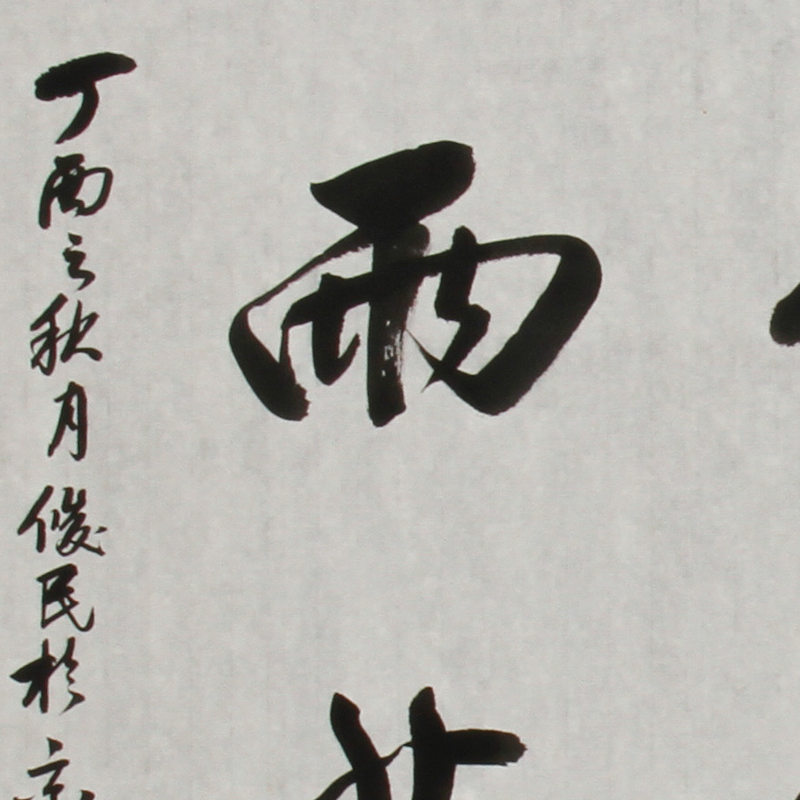 雨
丁酉之秋月俊民於京